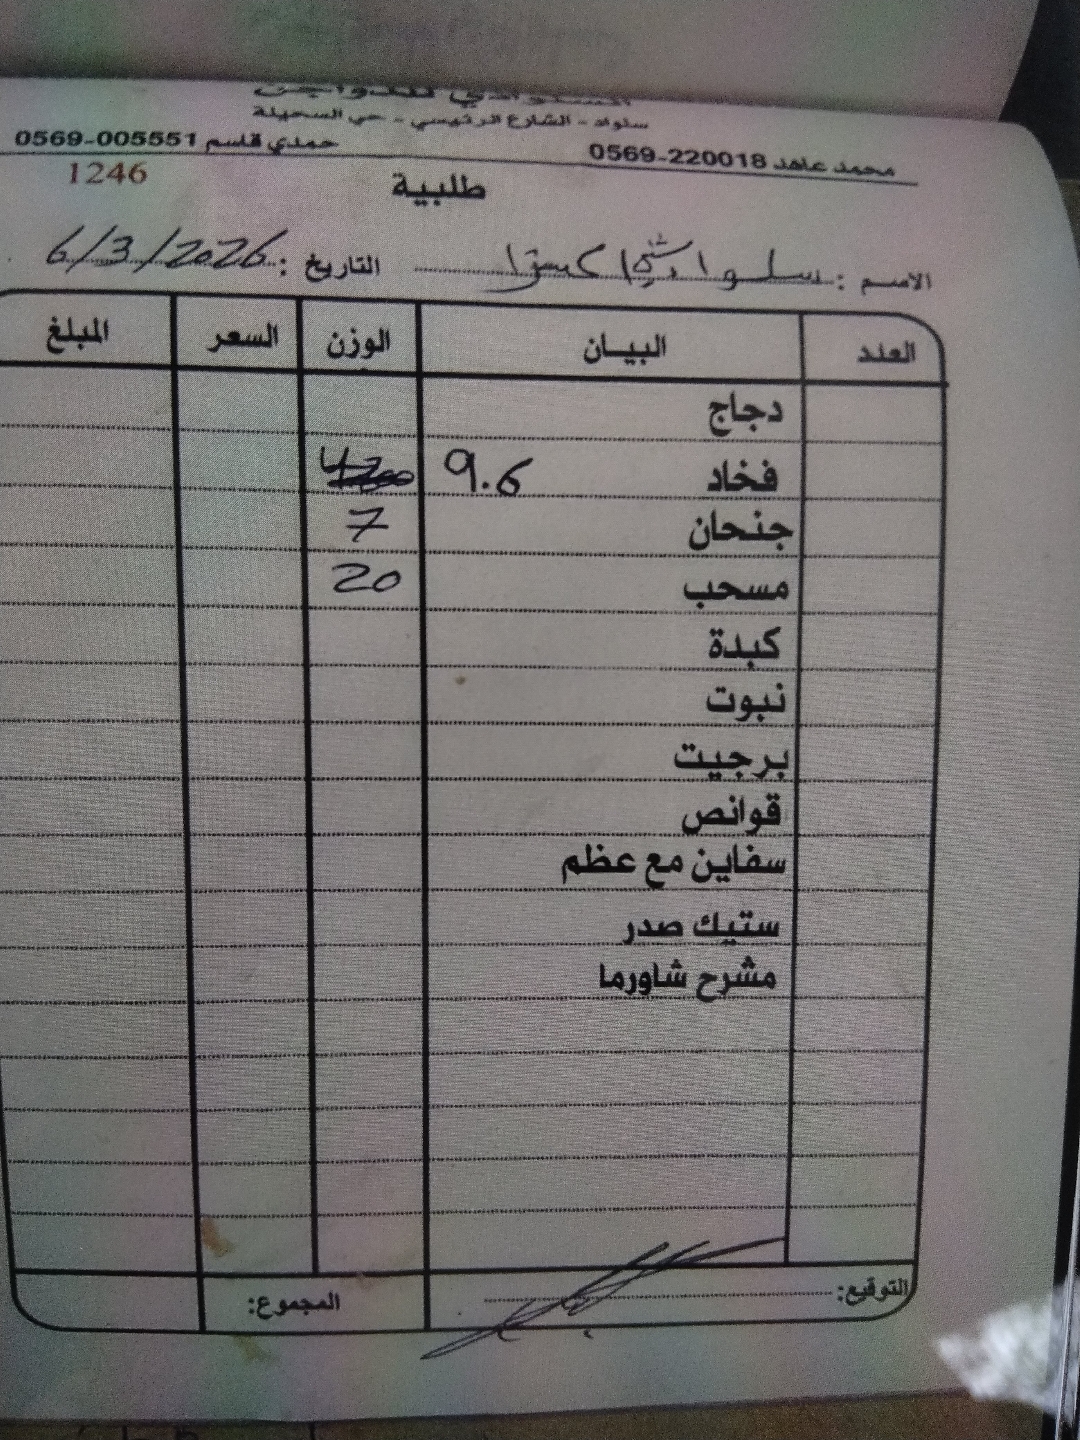 السلوادي للدواجن
سلواد - الشارع الرئيسي - حي السحيلة
محمد عاهد 0569-220018 حمدي قاسم 0569-005551
1246
طلبية
الاسم : سلواد التاريخ : 6/3/2026
العدد البيـــان الوزن السعر المبلغ
دجاج
فخاد 9.6
جنحان 7
مسحب 20
كبدة
نبوت
برجيت
قوانص
سفاين مع عظم
ستيك صدر
مشرح شاورما
التوقيع: المجموع: